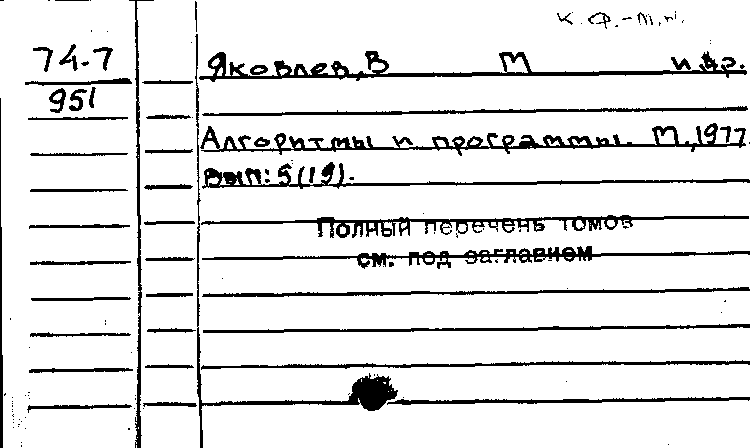 К. Ф.-м.н.
74-7
Яковлев, В М и др.
951
Алгоритмы и программы. М., 1977.
вып: 5(19).
Полный перечень томов
см. под заглавием